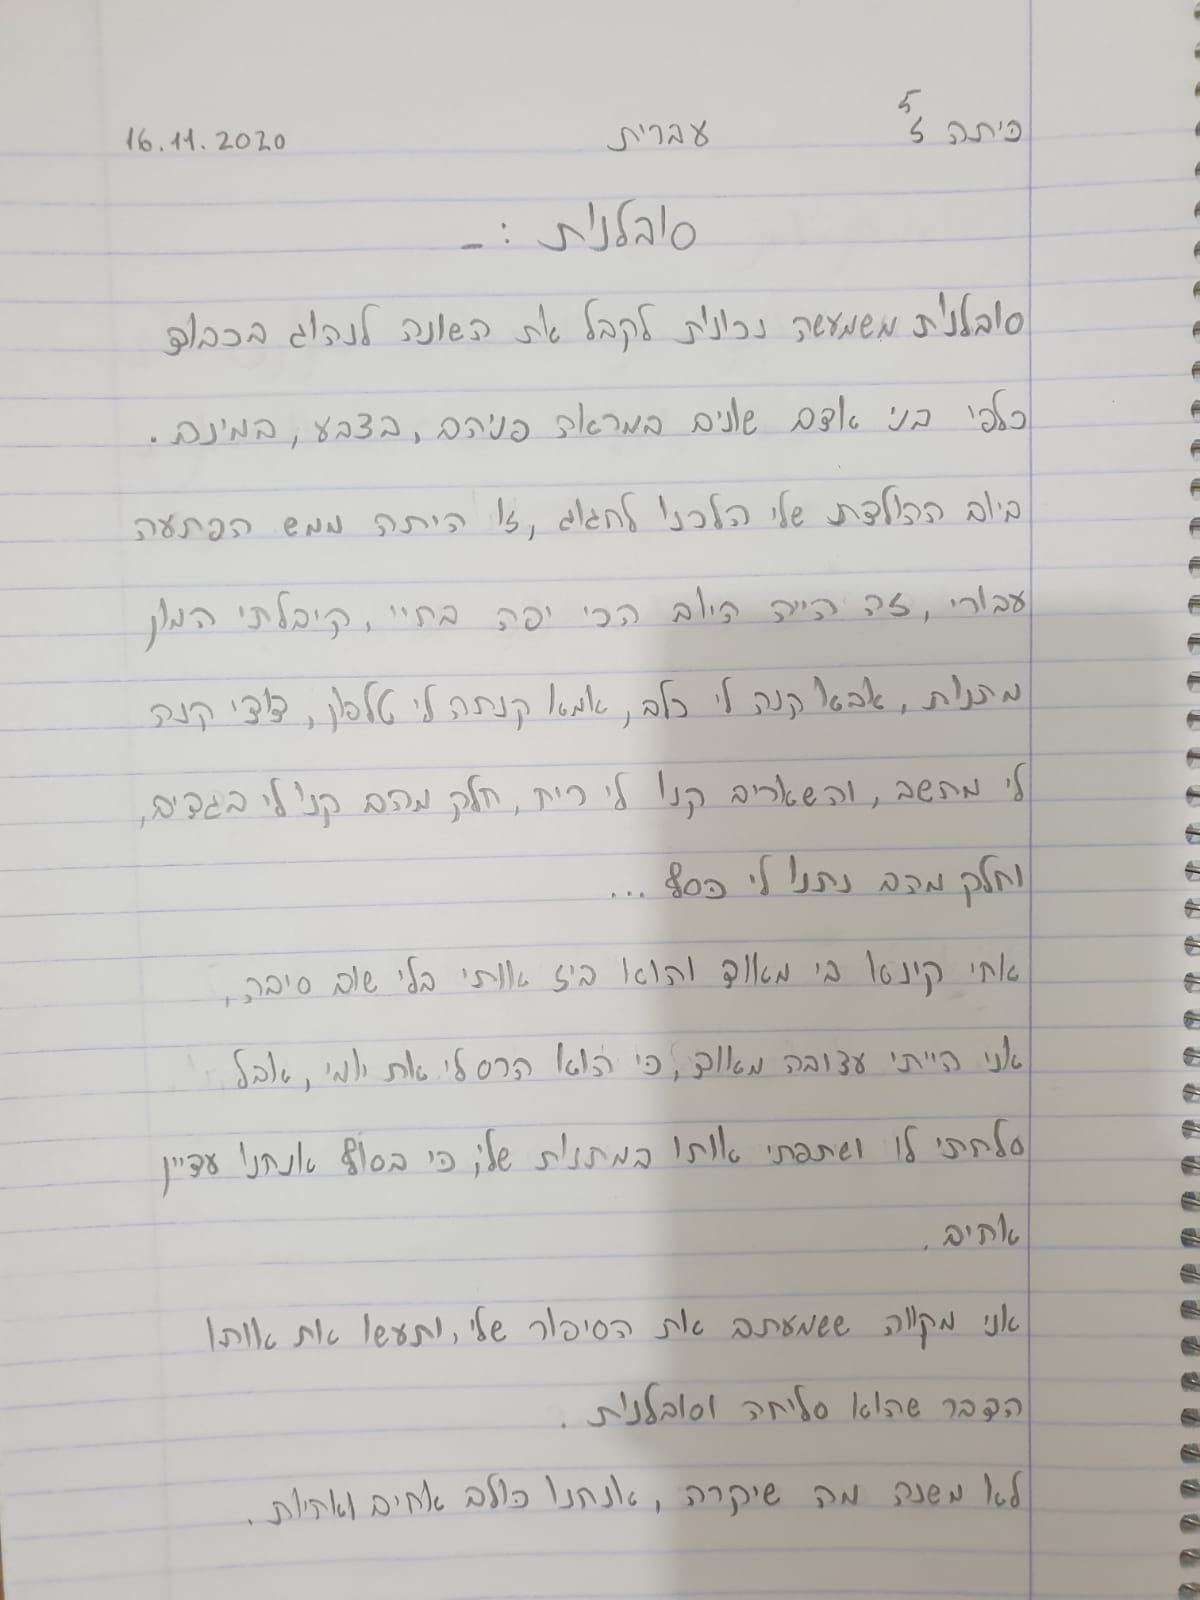 כיתה ז5 עברית 16.11.2020
סובלנות : _
סובלנות משמעשה נכונות לקבל את השונה לנהוג בכבוד
כלפי בני אדם שונים במראה פניהם , בצבע , במינם .
ביום ההולדת שלי הלכנו לחגוג , זו היתה ממש הפתעה
עבורי , זה הייה היום הכי יפה בחיי , קיבלתי המון
מתנות , אבא קנה לי כלב , אמא קנתה לי טלפון , דודי קנה
לי מחשב , והשארים קנו לי ריח , חלק מהם קנו לי בגדים ,
וחלק מהם נתנו לי כסף ...
אחי קינאה בי מאווד והוא ביז אותי בלי שום סיבה ,
אני הייתי עצובה מאוד , כי הוא הרס לי את יומי , אבל
סלחתי לו ושתפתי אותו במתנות שלי , כי בסוף אנחנו עדיין
אחים .
אני מקווה ששמעתם את הסיפור שלי , ותעשו את אותו
הדבר שהוא סליחה וסובלנות .
לא משנה מה שיקרה , אנחנו כולם אחים ואחיות .